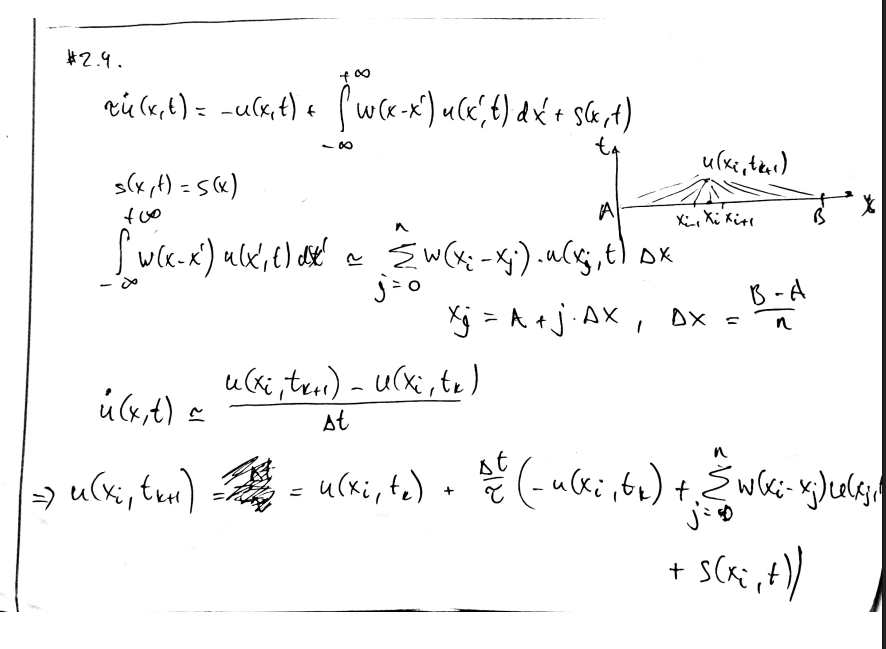 #2.9.
τu̇(x,t) = -u(x,t) + ∫_{-∞}^{+∞} w(x-x') u(x',t) dx' + s(x,t)
s(x,t) = s(x)
t
u(x_i, t_{k+1})
A x_{i-1} x_i x_{i+1} B x
∫_{-∞}^{+∞} w(x-x') u(x',t) dx' ≃ Σ_{j=0}^{n} w(x_i - x_j)·u(x_j, t) Δx
x_j = A + j·Δx , Δx = (B-A)/n
u̇(x,t) ≃ (u(x_i, t_{k+1}) - u(x_i, t_k))/Δt
⇒ u(x_i, t_{k+1}) = = u(x_i, t_k) + Δt/τ (-u(x_i, t_k) + Σ_{j=0}^{n} w(x_i - x_j) u(x_j,
+ s(x_i, t))